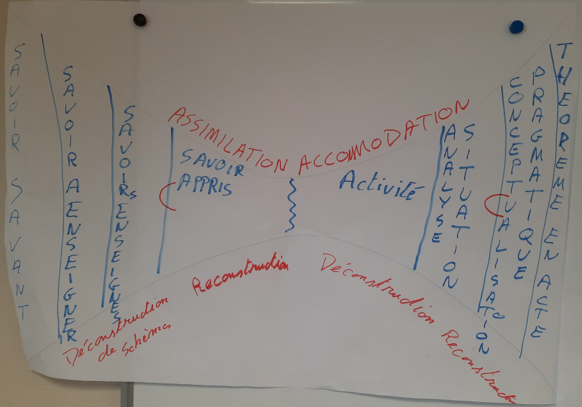 SAVOIR SAVANT
SAVOIR A ENSEIGNER
SAVOIRS ENSEIGNÉS
ASSIMILATION
ACCOMODATION
SAVOIR
APPRIS
Activité
ANALYSE
SITUATION
CONCEPTUALISATION
PRAGMATIQUE
THEOREME EN ACTE
Déconstruction
de schémas
Reconstruction
Déconstruction
Reconstruct